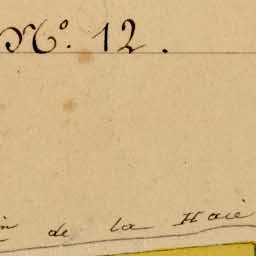 N.º 12.
in de la Haie